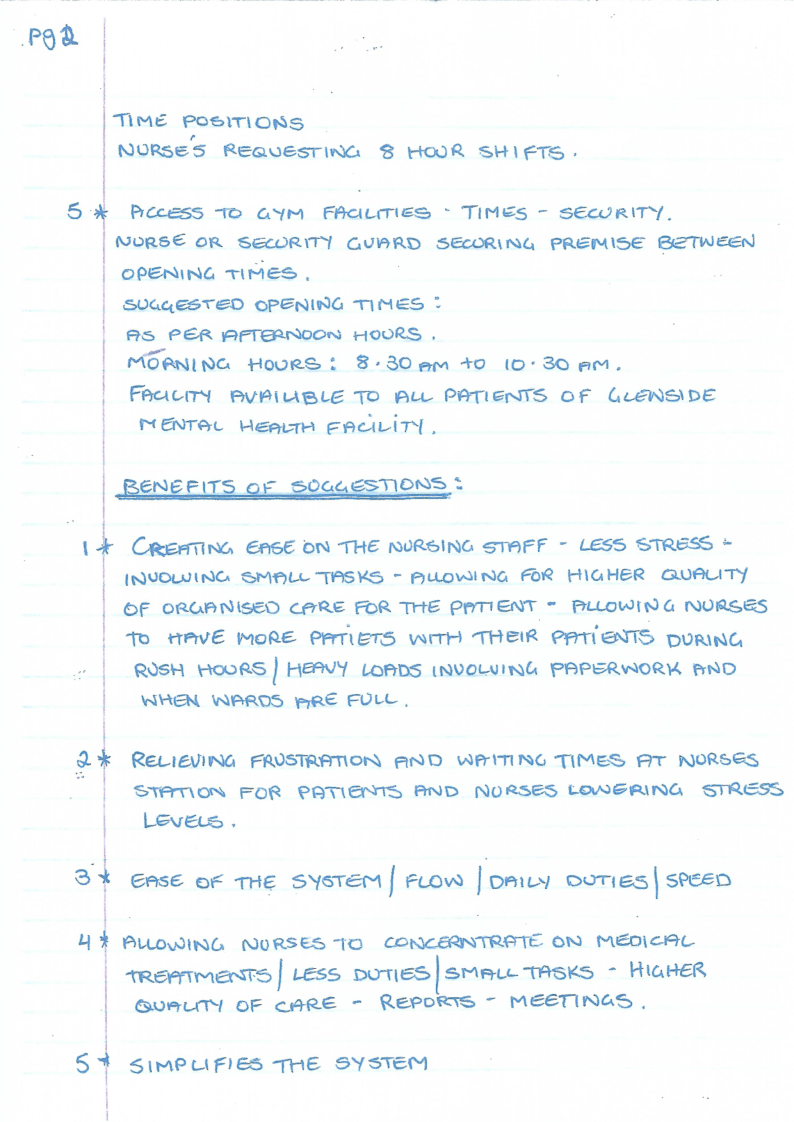 Pg 2
TIME POSITIONS
NURSE'S REQUESTING 8 HOUR SHIFTS.
5 * ACCESS TO GYM FACILITIES - TIMES - SECURITY.
NURSE OR SECURITY GUARD SECURING PREMISE BETWEEN
OPENING TIMES.
SUGGESTED OPENING TIMES:
AS PER AFTERNOON HOURS.
MORNING HOURS: 8.30 AM to 10.30 AM.
FACILITY AVAILIBLE TO ALL PATIENTS OF GLENSIDE
MENTAL HEALTH FACILITY.
BENEFITS OF SUGGESTIONS:
1 * CREATING EASE ON THE NURSING STAFF - LESS STRESS -
INVOLVING SMALL TASKS - ALLOWING FOR HIGHER QUALITY
OF ORGANISED CARE FOR THE PATIENT - ALLOWING NURSES
TO HAVE MORE PATIETS WITH THEIR PATIENTS DURING
RUSH HOURS / HEAVY LOADS INVOLVING PAPERWORK AND
WHEN WARDS ARE FULL.
2 * RELIEVING FRUSTRATION AND WAITING TIMES AT NURSES
STATION FOR PATIENTS AND NURSES LOWERING STRESS
LEVELS.
3 * EASE OF THE SYSTEM / FLOW / DAILY DUTIES / SPEED
4 * ALLOWING NURSES TO CONCERNTRATE ON MEDICAL
TREATMENTS / LESS DUTIES / SMALL TASKS - HIGHER
QUALITY OF CARE - REPORTS - MEETINGS.
5 * SIMPLIFIES THE SYSTEM